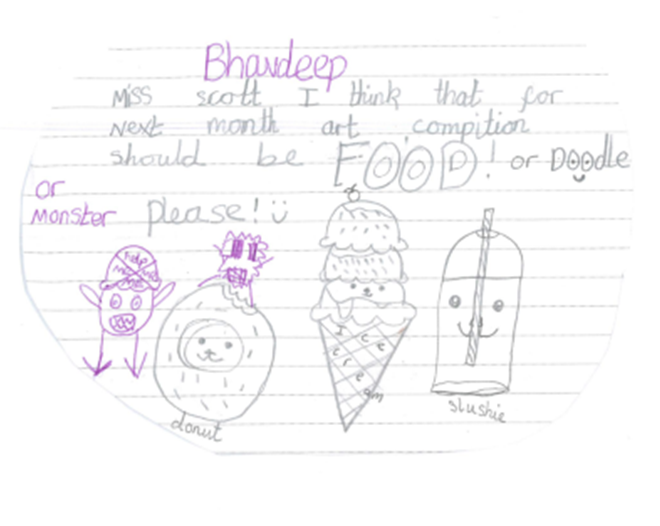 Bhavdeep
Miss scott I think that for
Next month art compition
should be FOOD! or Doodle
or
Monster please!
Ice
cre
am
donut
slushie